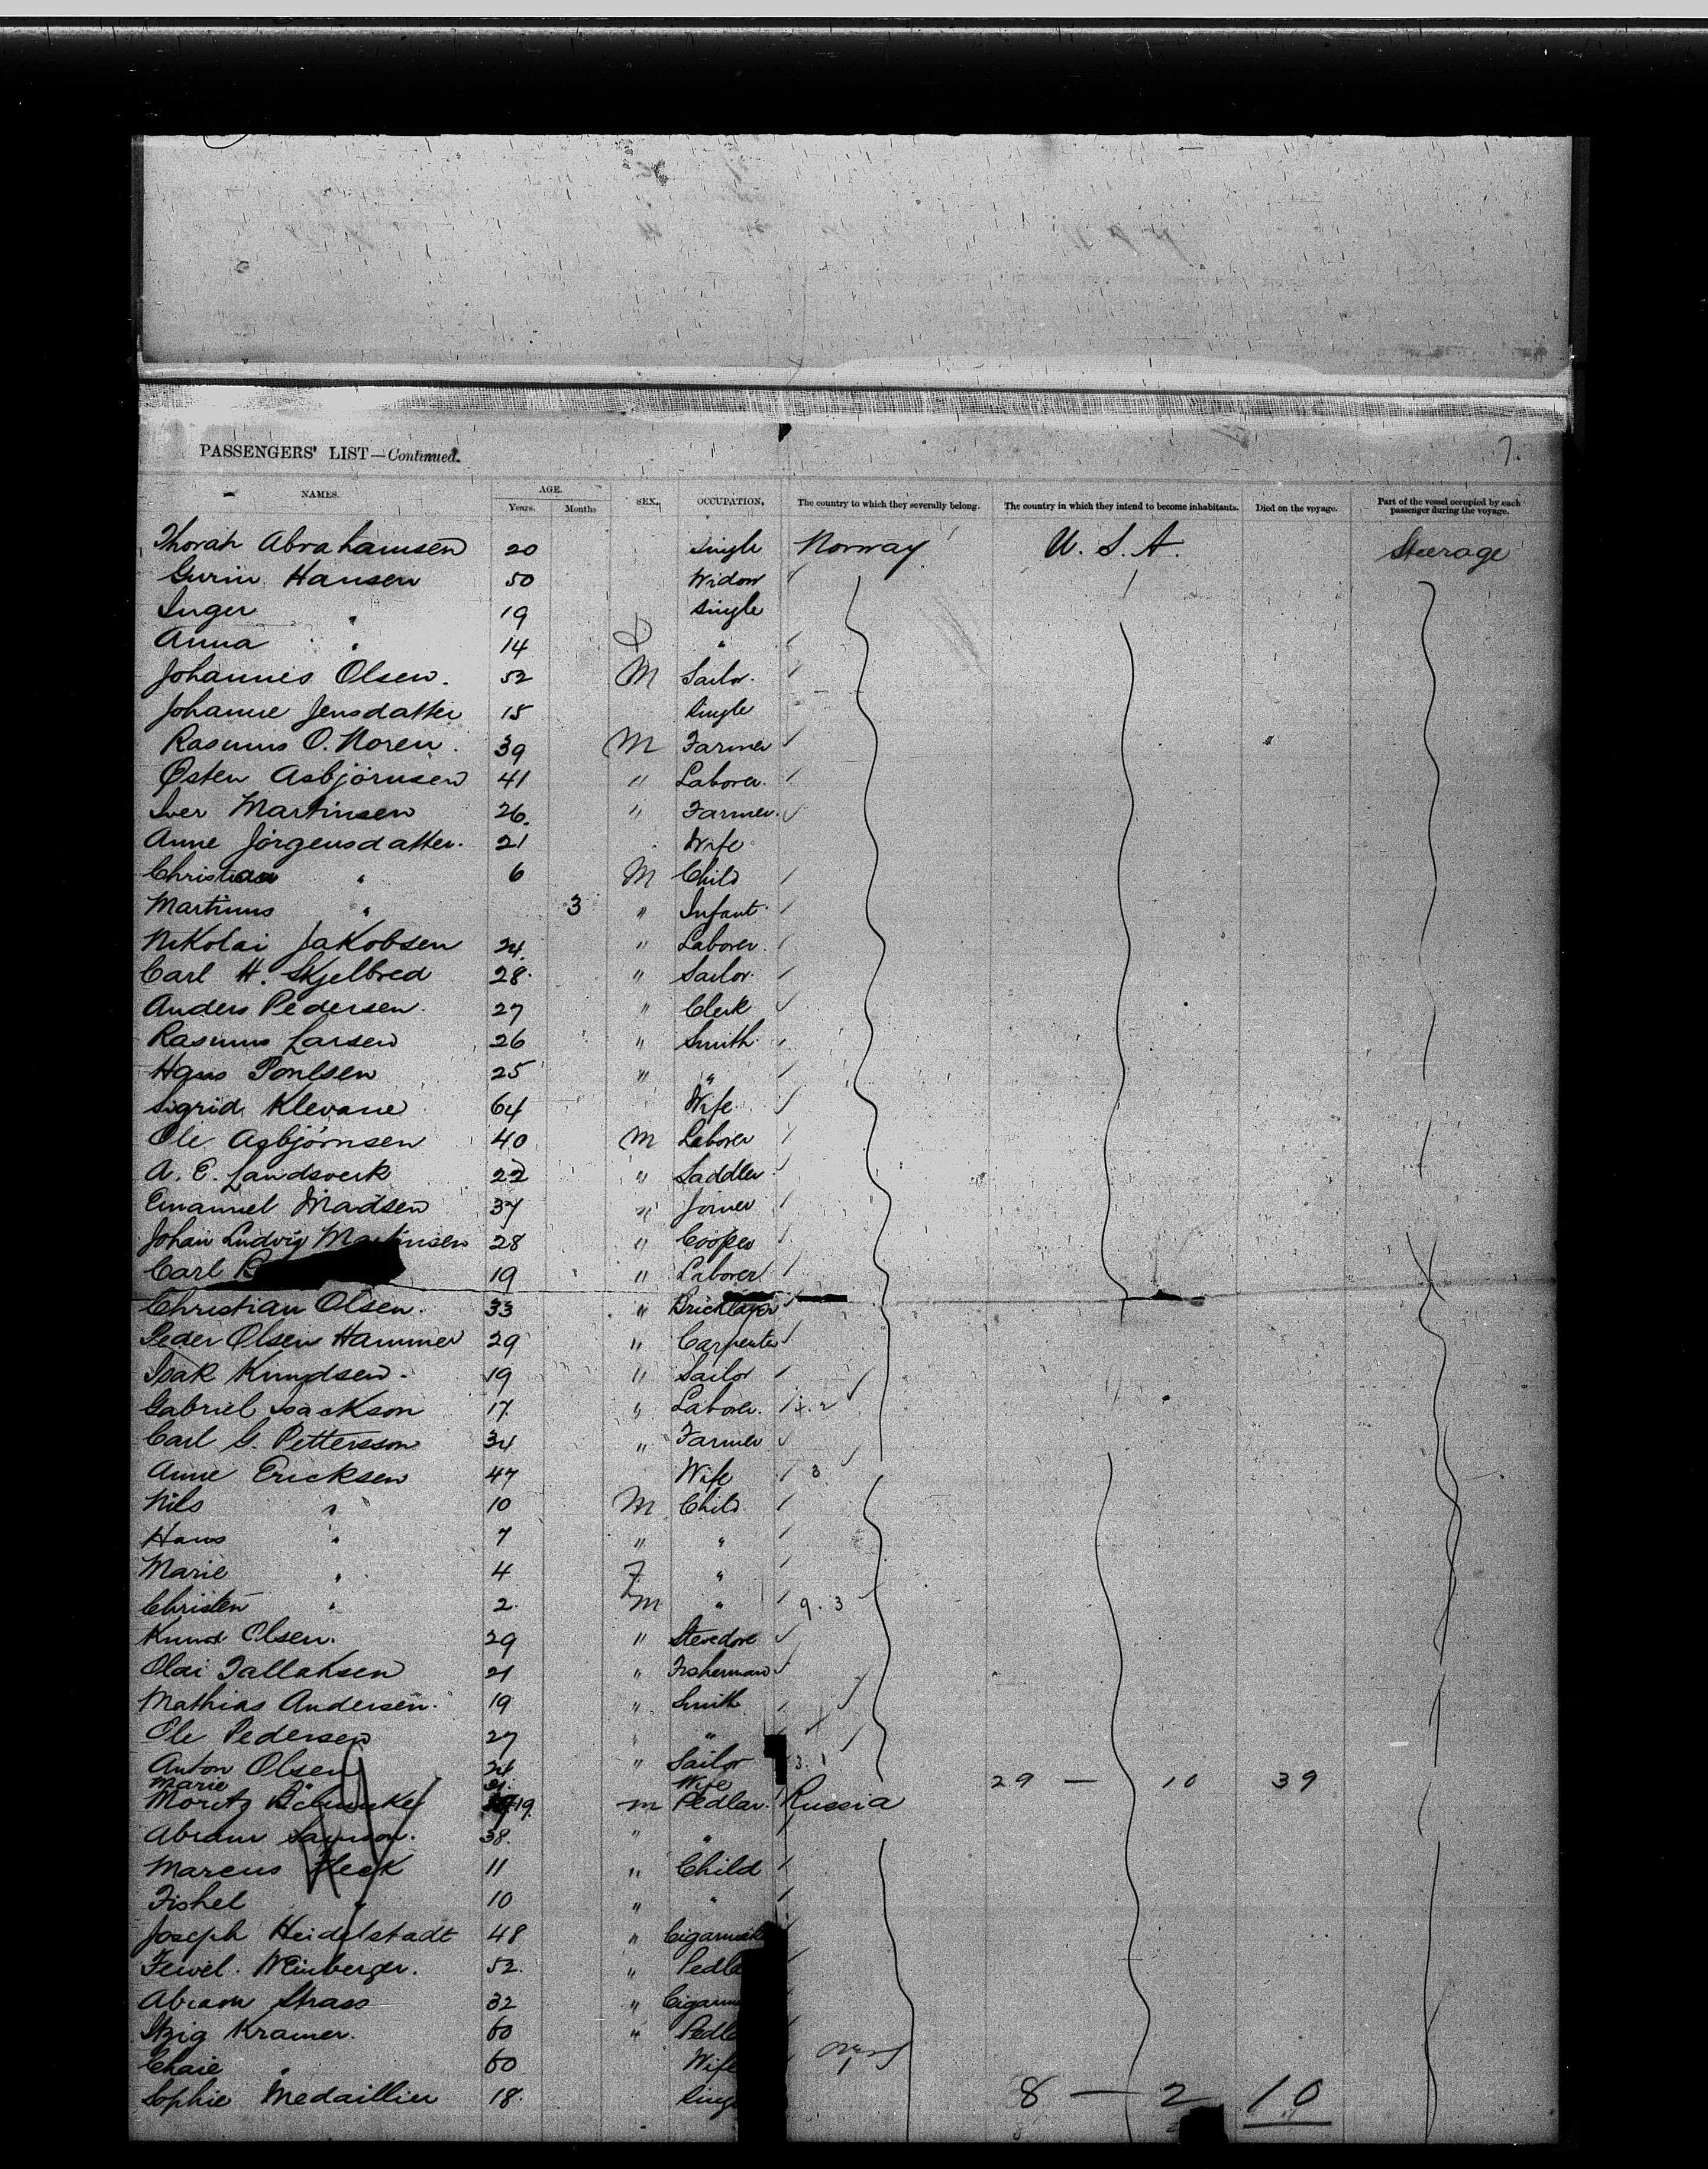 7.
PASSENGERS' LIST—Continued.
NAMES. AGE. Years. Months SEX. OCCUPATION. The country to which they severally belong. The country in which they intend to become inhabitants. Died on the voyage. Part of the vessel occupied by each passenger during the voyage.
Thorah Abrahamsen 20 Single Norway U. S. A. Steerage
Gurin Hansen 50 Widow
Inger " 19 Single
Anna " 14 "
Johannes Olsen. 52 M Sailor.
Johanne Jensdatter 15 Single
Rasmus O. Noren. 39 M Farmer "
Østen Asbjörnsen 41 " Laborer.
Iver Martinsen 26. " Farmer.
Anne Jörgensdatter. 21 Wife
Christian " 6 M Child
Martinus " 3 " Infant
Nikolai Jakobsen 24. " Laborer.
Carl H. Skjelbred 28. " Sailor.
Anders Pedersen. 27 " Clerk
Rasmus Larsen 26 " Smith
Hans Poulsen 25 " "
Sigrid Klevane 64 Wife
Ole Asbjørnsen 40 M Laborer
A. E. Landsverk 22 " Saddler
Emanuel Madsen 37 " Joiner
Johan Ludvig Martinsen 28 " Cooper
Carl 19 " Laborer
Christian Olsen. 33 " Bricklayer
Peder Olsen Hammer 29 " Carpenter
Isak Knudsen. 19 " Sailor
Gabriel Isackson 17. " Laborer.
Carl G. Pettersson 34 " Farmer
Anne Ericksen 47 Wife 3
Nils " 10 M Child
Hans " 7 " "
Marie " 4 F "
Christen " 2. M " 9.3
Knud Olsen. 29 " Stevedore
Olai Tallaksen 21 " Fisherman
Mathias Andersen. 19 " Smith
Ole Pedersen 27 "
Anton Olsen 24 " Sailor 3.1
Marie 21. Wife 29 — 10 39
Moritz 19. m Pedlar. Russia
Abram 38. " "
Marcus Fleck 11 " Child
Fishel " 10 " "
Joseph Heidelstadt 48 " Cigarmake
Feiwel Weinberger. 52. " Pedla
Abraam Strass 32 " Cigarm
Itzig Kramer. 60 " Pedla
Chaie " 60 Wife
Sophie Medaillier 18. Sing 8 — 2 10